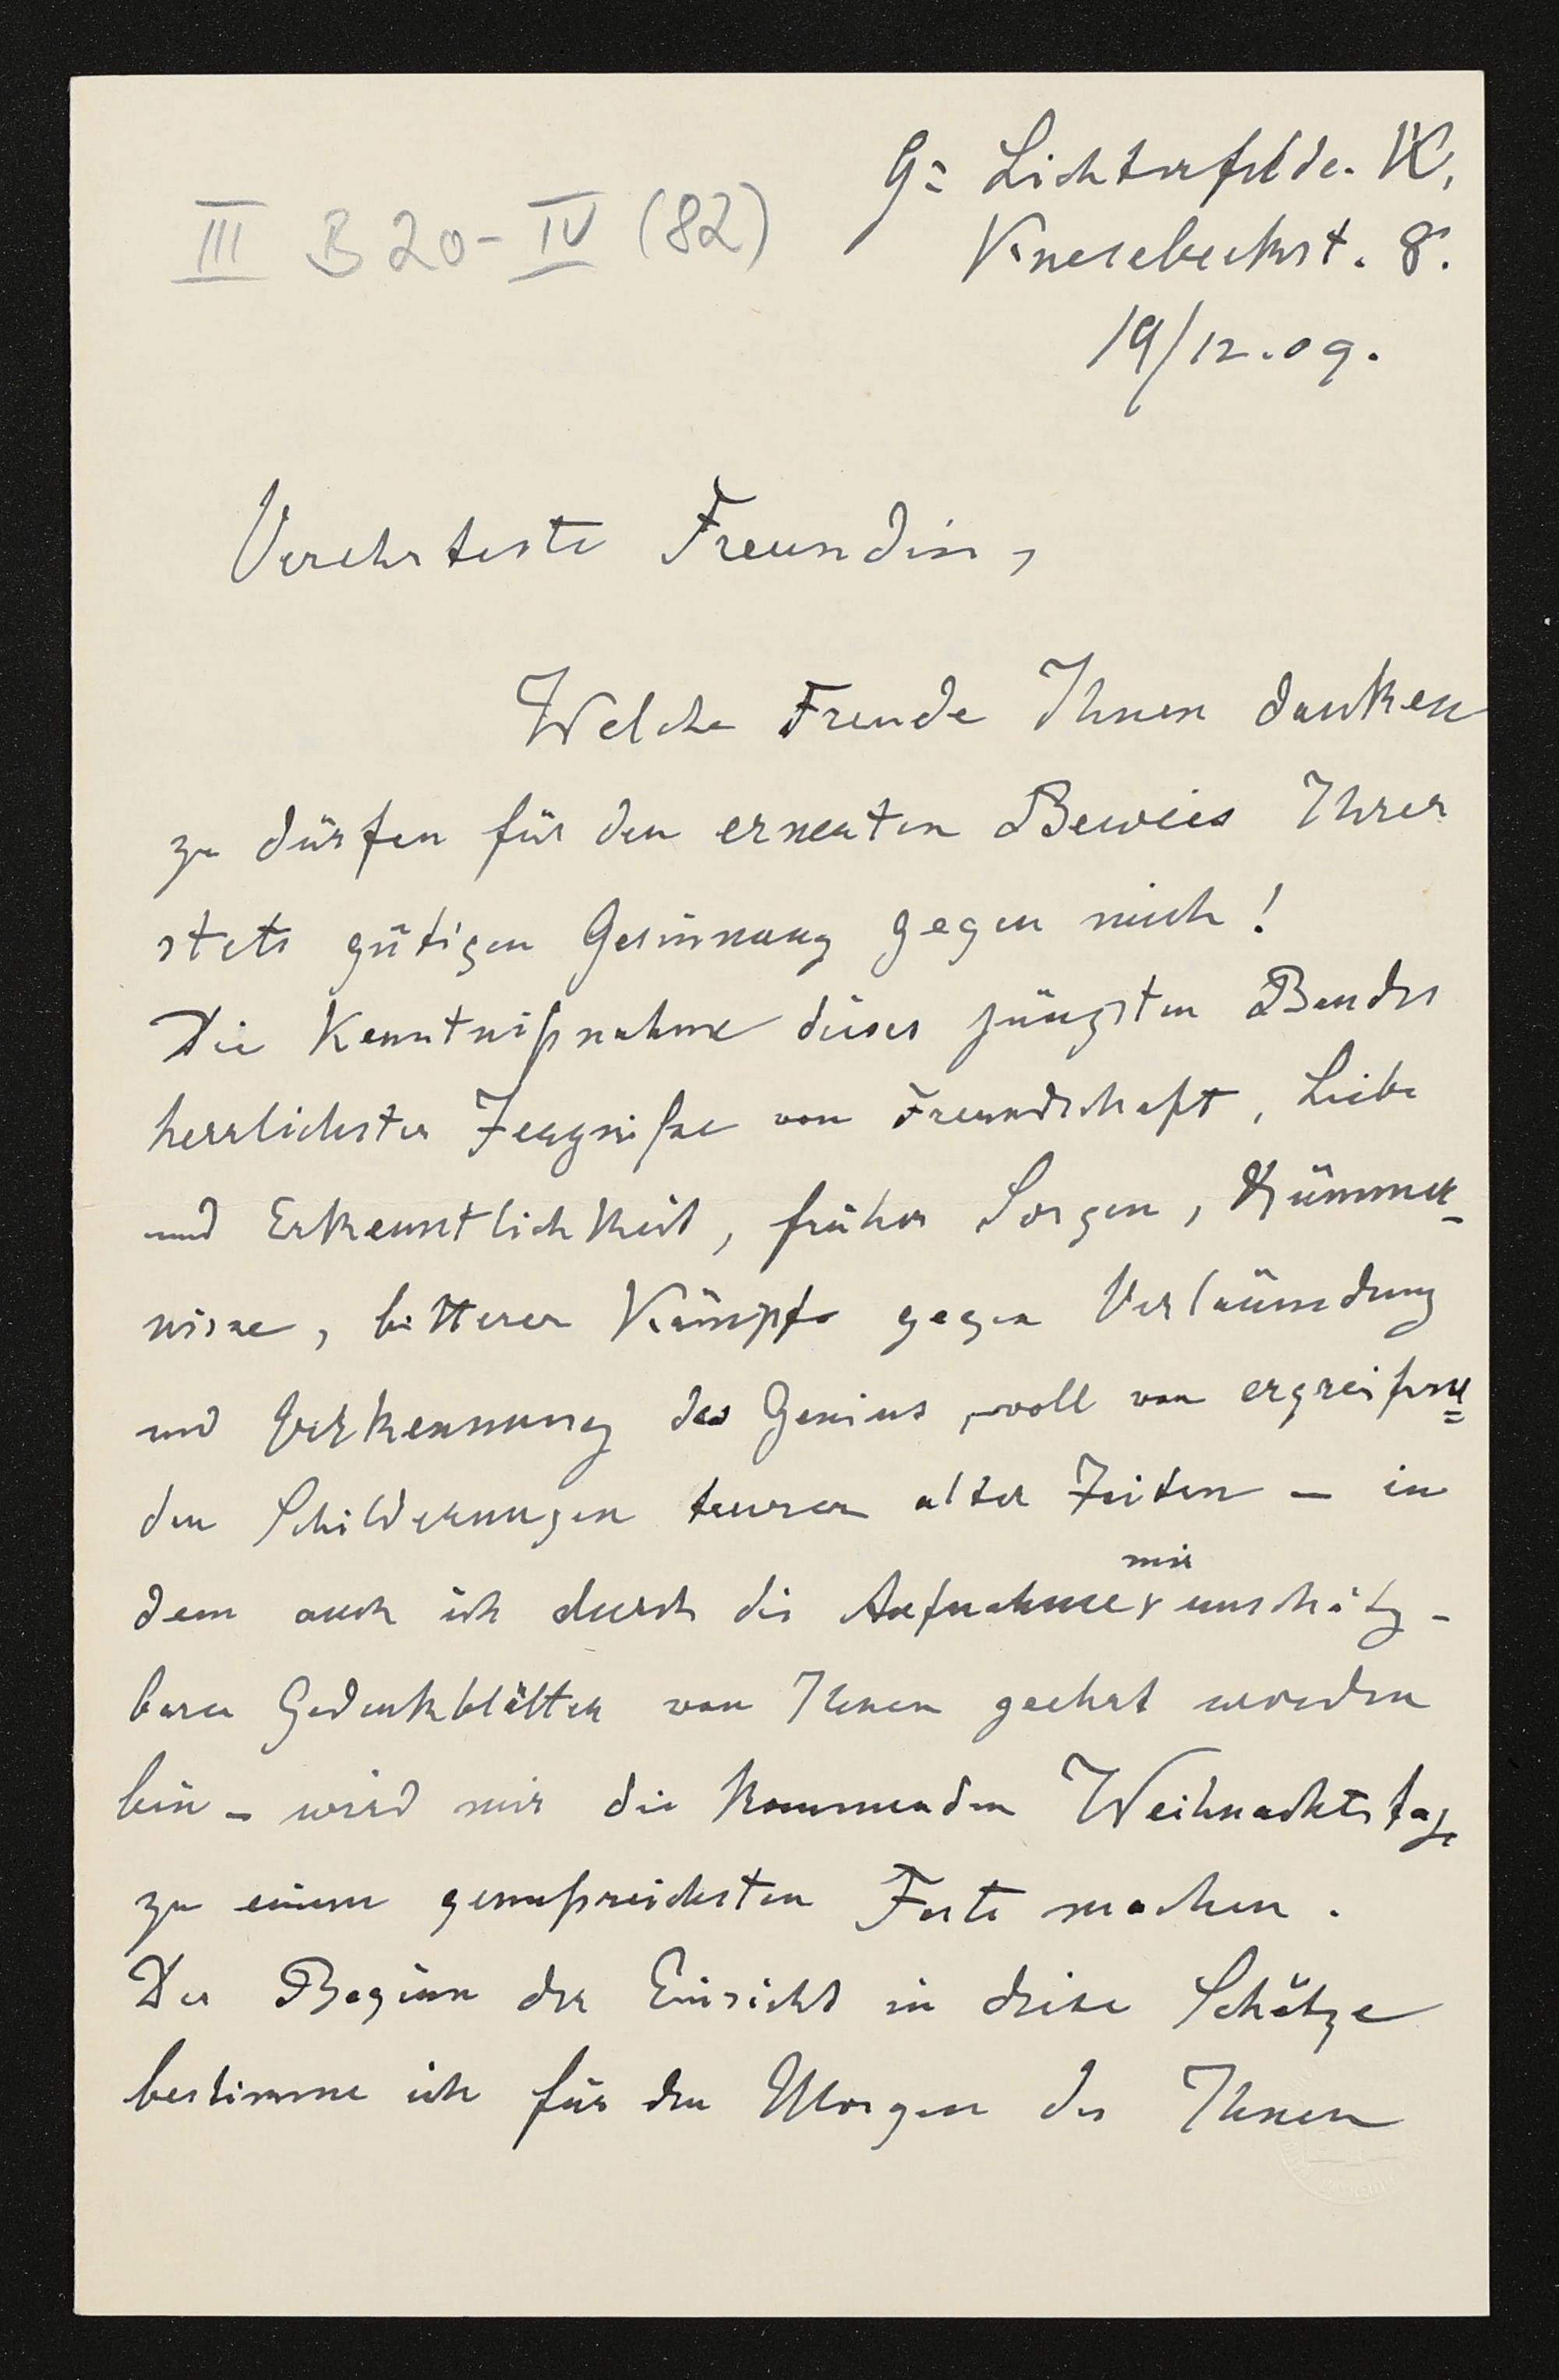 III B 20 - IV (82)
G= Lichterfelde. W,
Knesebeckst. 8.
19/12.09.
Verehrteste Freundin,
Welche Freude Ihnen danken
zu dürfen für den erneuten Beweis Ihrer
stets gütigen Gesinnung gegen mich!
Die Kenntnißnahme dieses jüngsten Bandes
herrlichster Zeugniße von Freundschaft, Liebe
und Erkenntlichkeit, früher Sorgen, Kümmer-
nisse, bitterer Kämpfe gegen Verläumdung
und Verkennung des Genius, voll von ergreifen=
den Schilderungen teurer alter Zeiten – in
dem auch ich durch die Aufnahme mir unschätz-
barer Gedenkblätter von Ihnen geehrt worden
bin – wird mir die kommenden Weihnachtstage
zu einem genußreichsten Feste machen.
Der Beginn der Einsicht in diese Schätze
bestimme ich für den Morgen des Ihnen